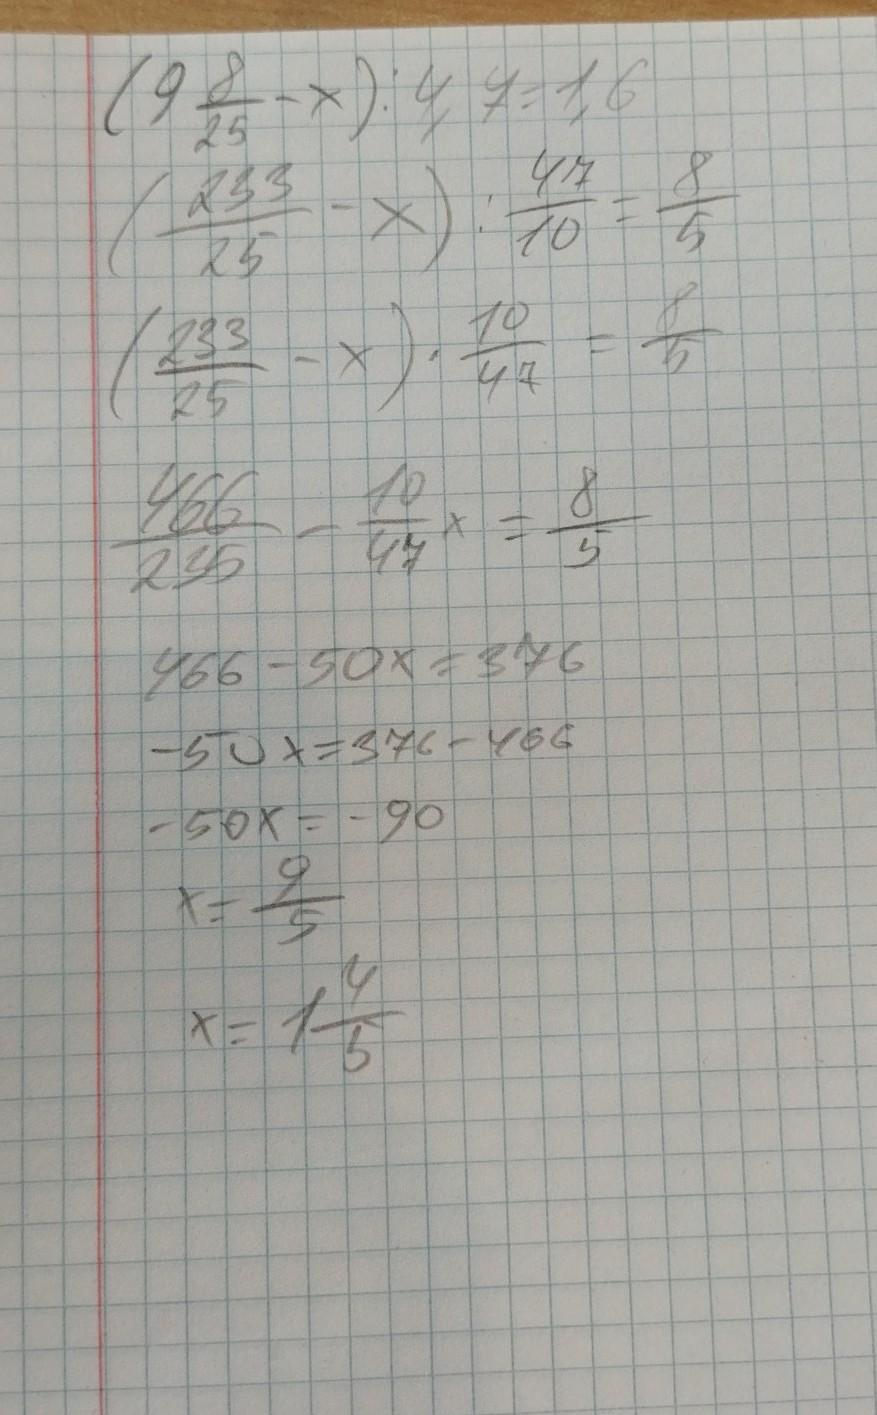 (9 8/25 - x) : 4,7 = 1,6
(233/25 - x) : 47/10 = 8/5
(233/25 - x) · 10/47 = 8/5
466/235 - 10/47 x = 8/5
466 - 50x = 376
-50x = 376 - 466
-50x = -90
x = 9/5
x = 1 4/5